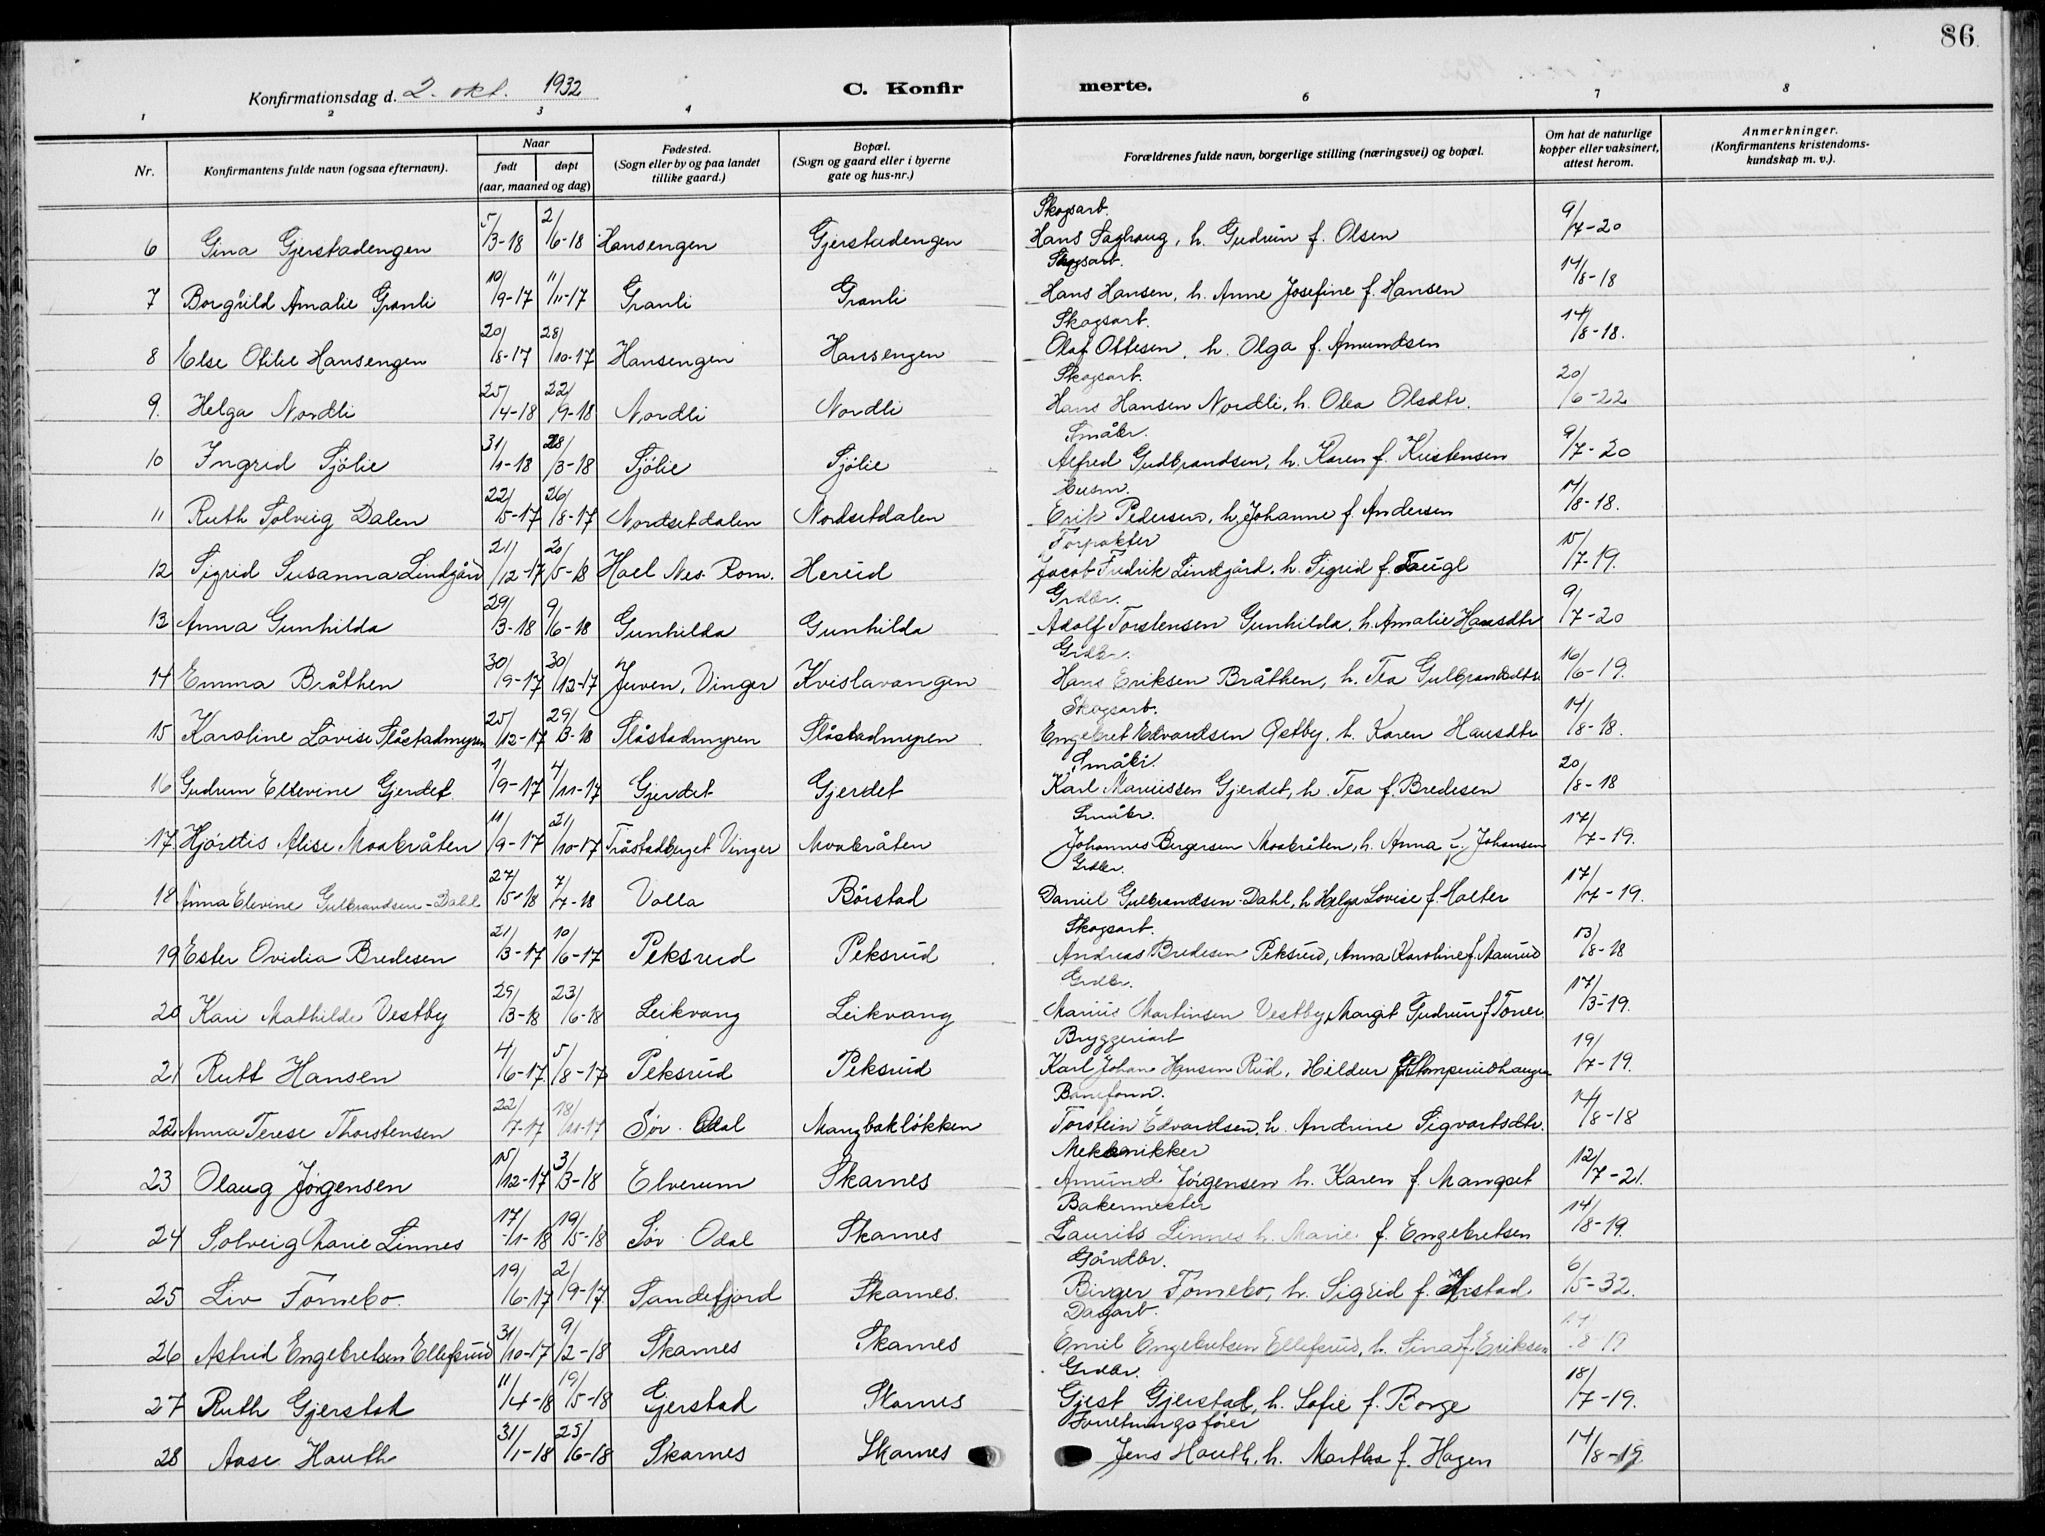 86
Konfirmationsdag d. 2. okt. 1932
C. Konfirmerte.
1 2 3 4 6 7 8
Nr. Konfirmantens fulde navn (ogsaa efternavn). Naar født døpt (aar, maaned og dag) Fødested. (Sogn eller by og paa landet tillike gaard.) Bopæl. (Sogn og gaard eller i byerne gate og hus-nr.) Forældrenes fulde navn, borgerlige stilling (næringsvei) og bopæl. Om hat de naturlige kopper eller vaksinert, attest herom. Anmerkninger. (Konfirmantens kristendomskundskap m. v.).
Skogsarb.
6 Gina Gjerstadengen 5/3-18 2/6-18 Hansengen Gjerstadengen Hans Saghaug, h. Gudrun f. Olsen 9/7-20
Skogsarb.
7 Borghild Amalie Granli 10/9-17 11/11-17 Granli Granli Hans Hansen, h. Anne Josefine f. Hansen 14/8-18
Skogsarb.
8 Else Otilie Hansengen 20/8-17 28/10-17 Hansengen Hansengen Olaf Ottesen, h. Olga f. Amundsen 14/8-18.
Skogsarb.
9. Helga Nordli 25/4-18 22/9-18 Nordli Nordli Hans Hansen Nordli, h. Olea Olsdtr. 20/6-22
Småbr.
10 Ingrid Sjølie 31/1-18 28/3-18 Sjølie Sjølie Alfred Gudbrandsen, h. Karen f. Kristensen 9/7-20
Husm.
11 Ruth Solveig Dalen 22/5-17 26/8-17 Nordsetdalen Nordsetdalen Erik Pedersen, h. Johanne f. Andersen 14/8-18.
Forpakter
12 Sigrid Susanna Lindgård 21/12-17 20/5-18 Hael Nes. Rom. Herud Jacob Fredrik Lindgård. h. Sigrid f. Faugl 15/7-19.
Grdbr.
13 Anna Gunhilda 29/3-18 9/6-18 Gunhilda Gunhilda Adolf Torstensen Gunhilda, h. Amalie Hansdtr 9/7-20
Grdbr.
14 Emma Bråthen 30/9-17 30/12-17 Juven, Vinger Kvislavangen Hans Eriksen Bråthen, h. Tea Gulbrandsdtr. 16/6-19.
Skogsarb.
15 Karoline Lovise Slåstadmyren 25/12-17 29/3-18 Slåstadmyren Slåstadmyren Engebret Edvardsen Østby, h. Karen Hansdtr 14/8-18.
Småbr.
16 Gudrun Ellevine Gjerdet 1/9-17 4/11-17 Gjerdet Gjerdet Karl Mariussen Gjerdet, h. Tea f. Bredesen 20/8-18
Småbr.
17 Hjørdis Alise Moabråten 11/9-17 21/10-17 Tråstadberget Vinger Moabråten Johannes Bergersen Moabråten, h. Anna f. Johansen 17/7-19.
Grdbr.
18 Anna Elevine Gulbrandsen-Dahl 27/5-18 7/7-18 Volla Børstad Daniel Gulbrandsen-Dahl, h Helga Lovise f. Holter 17/7-19.
Skogsarb.
19 Ester Ovidia Bredesen 21/3-17 10/6-17 Peksrud Peksrud Andreas Bredesen Peksrud, Anna Karoline f. Aaurud 13/8-18
Grdbr.
20 Kari Mathilde Vestby 29/3-18 23/6-18 Leikvang Leikvang Marius Martinsen Vestby, Margit Gudrun f Toner. 17/3-19.
Bryggeriarb
21 Rutt Hansen 4/6-17 5/8-17 Peksrud Peksrud Karl Johan Hansen Rud, Hildur f. Stomperudhaugen 19/7-19.
Baneform.
22 Anna Terese Thorstensen 22/7-17 18/11-17 Sør Odal Mangbakløkken Torstein Edvardsen, h. Andrine Sigvartsdtr. 14/8-18
Mekanikker
23 Olaug Jørgensen 15/12-17 3/3-18 Elverum Skarnes Amund Jørgensen h. Karen f. Mangset 12/7-21.
Bakermester
24 Solveig Marie Linnes 17/1-18 19/5-18 Sør Odal Skarnes Laurits Linnes h. Marie f. Engebretsen 14/8-19.
Gårdbr.
25 Liv Fornebo. 19/6-17 2/9-17 Sandefjord Skarnes. Birger Fornebo, h. Sigrid f. Arstad 6/5-32.
Dagarb.
26 Astrid Engebretsen Ellefsrud 31/10-17 9/2-18 Skarnes Skarnes Emil Engebretsen Ellefsrud, h. Sina f. Eriksen 8-19
Grdbr.
27 Ruth Gjerstad 11/4-18 19/5-18 Gjerstad Skarnes Gjest Gjerstad, h. Sofie f. Borge 18/7-19.
Forretningsfører
28 Aase Hauth 31/1-18 23/6-18 Skarnes Skarnes Jens Hauth, h. Martha f. Hagen 14/8-19.